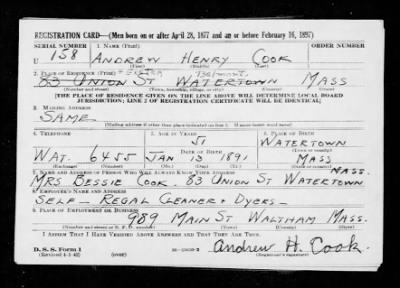 REGISTRATION CARD—(Men born on or after April 28, 1877 and on or before February 16, 1897)
SERIAL NUMBER 1. NAME (Print) ORDER NUMBER
U 158 ANDREW HENRY COOK
(First) (Middle) (Last)
2. PLACE OF RESIDENCE (Print)
83 UNION ST WATERTOWN MASS
(Number and street) (Town, township, village, or city) (County) (State)
[THE PLACE OF RESIDENCE GIVEN ON THE LINE ABOVE WILL DETERMINE LOCAL BOARD
JURISDICTION; LINE 2 OF REGISTRATION CERTIFICATE WILL BE IDENTICAL]
3. MAILING ADDRESS
SAME
[Mailing address if other than place indicated on line 2. If same insert word same]
4. TELEPHONE 5. AGE IN YEARS 6. PLACE OF BIRTH
51 WATERTOWN
DATE OF BIRTH (Town or county)
WAT. 6455 JAN 13 1891 MASS
(Exchange) (Number) (Mo.) (Day) (Yr.) (State or country)
7. NAME AND ADDRESS OF PERSON WHO WILL ALWAYS KNOW YOUR ADDRESS MASS.
MRS BESSIE COOK 83 UNION ST WATERTOWN
8. EMPLOYER'S NAME AND ADDRESS
SELF - REGAL CLEANER + DYERS -
9. PLACE OF EMPLOYMENT OR BUSINESS
989 MAIN ST WALTHAM MASS.
(Number and street or R. F. D. number) (Town) (County) (State)
I AFFIRM THAT I HAVE VERIFIED ABOVE ANSWERS AND THAT THEY ARE TRUE.
D. S. S. Form 1
(Revised 4-1-42) (over) Andrew H. Cook.
(Registrant's signature)